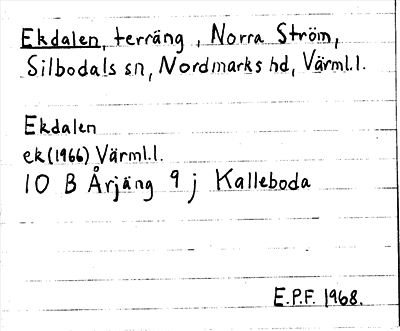 Ekdalen, terräng, Norra Ström,
Silbodals sn, Nordmarks hd, Värml.l.
Ekdalen
ek (1966) Värml.l.
10 B Årjäng 9 j Kalleboda
E.P.F. 1968.